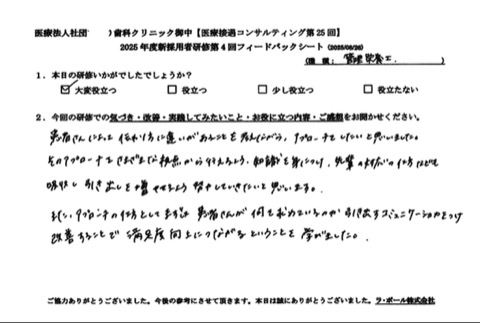 医療法人社団　　）歯科クリニック御中【医療接遇コンサルティング第25回】
2025年度新採用者研修第4回フィードバックシート（2025/08/26）
（職種：管理栄養士）
1．本日の研修いかがでしたでしょうか？
☑ 大変役立つ　□ 役立つ　□ 少し役立つ　□ 役立たない
2．今回の研修での気づき・改善・実践してみたいこと・お役に立つ内容・ご感想をお聞かせください。
患者さんによって伝わり方に違いがあることを考えながら、アプローチしたいと思いました。
そのアプローチもさまざまな視点から行えるよう、知識を身につけ、先輩の対応の仕方なども
吸収し引き出しを増やせるよう努力していきたいと思います。
また、アプローチの仕方としてまずは患者さんが何を求めているのか引き出すコミュニケーションをとり
改善することで満足度向上につながるということを学びました。
ご協力ありがとうございました。今後の参考にさせて頂きます。本日は誠にありがとうございました。ラ・ポール株式会社